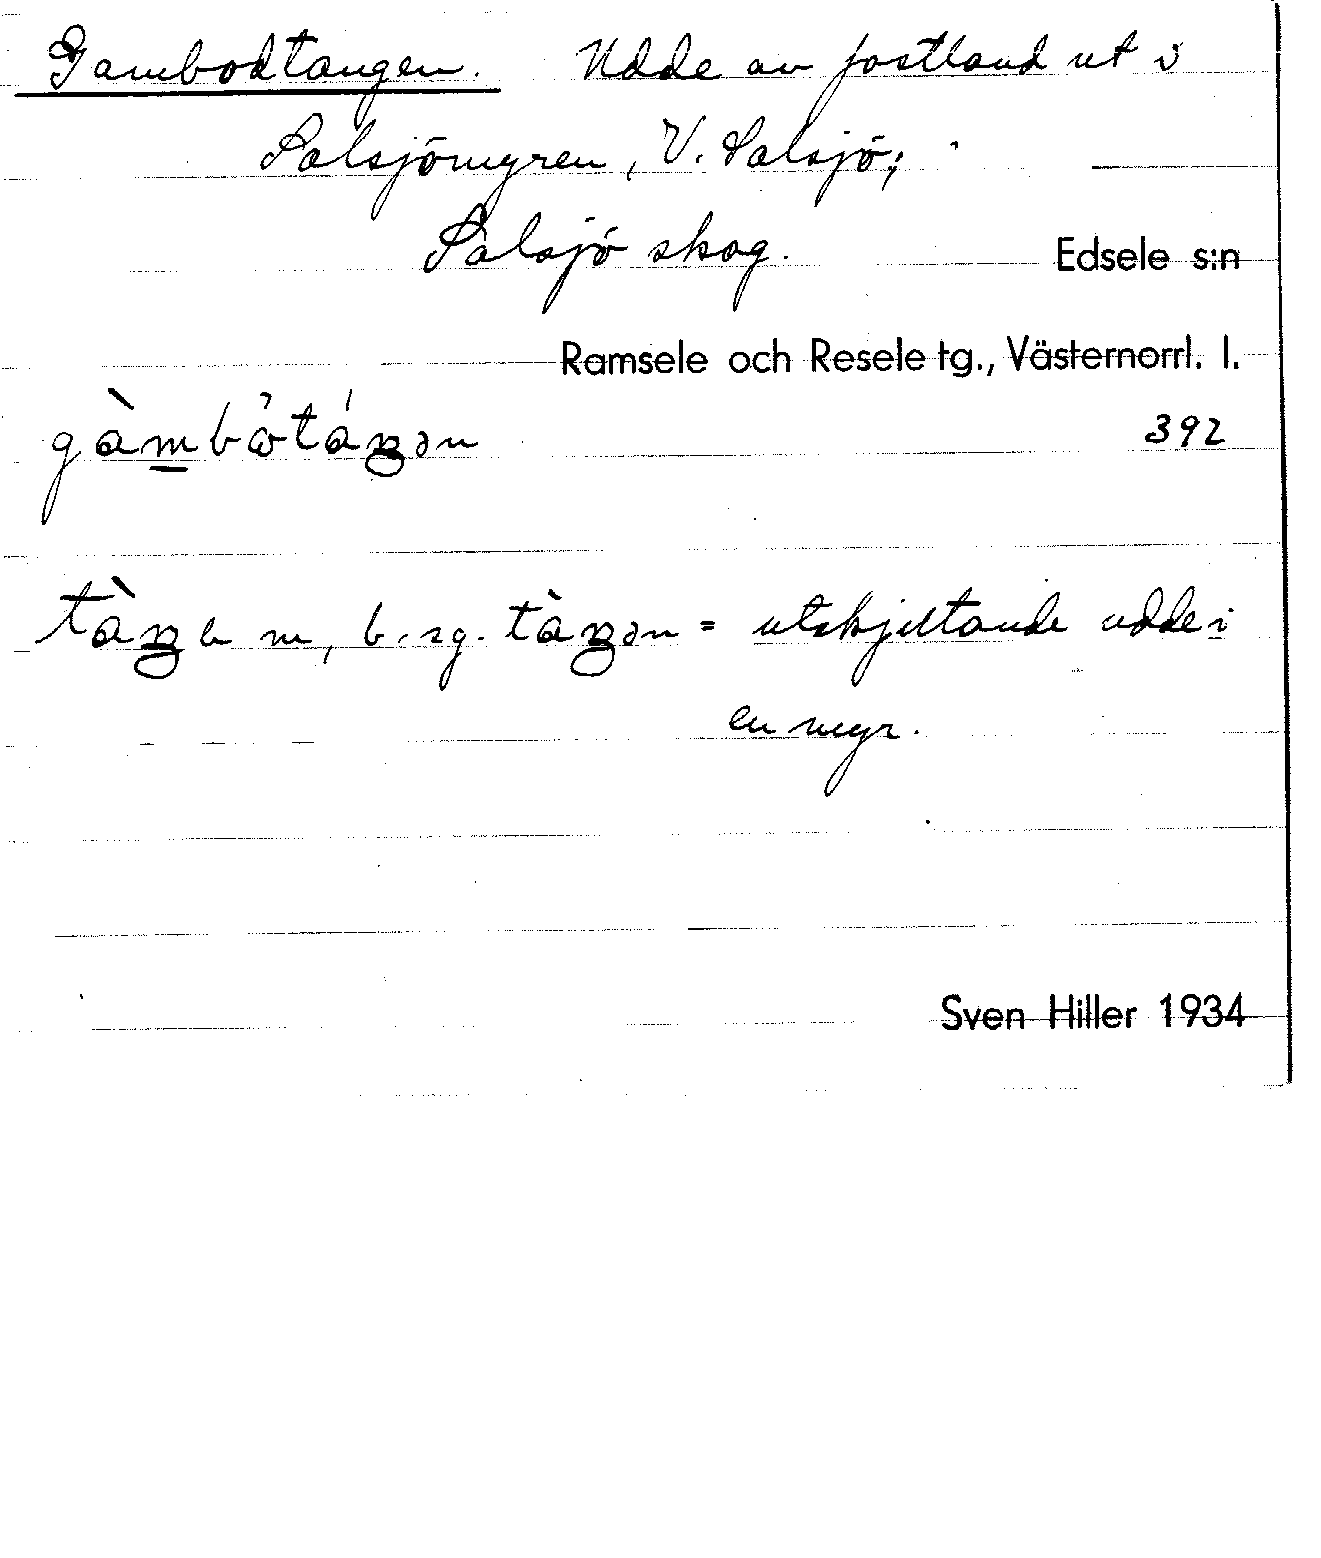 Gambodtangen. Udde av fastland ut i
Salsjömyren, V. Salsjö;
Salsjö skog. Edsele s:n
Ramsele och Resele tg., Västernorrl. l.
392
m, b. sg. = utskjutande udde i
en myr.
Sven Hiller 1934